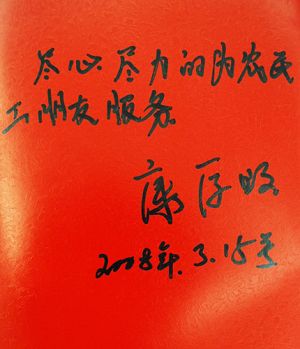 尽心尽力的为农民
工朋友服务
康厚明
2008年.3.15号